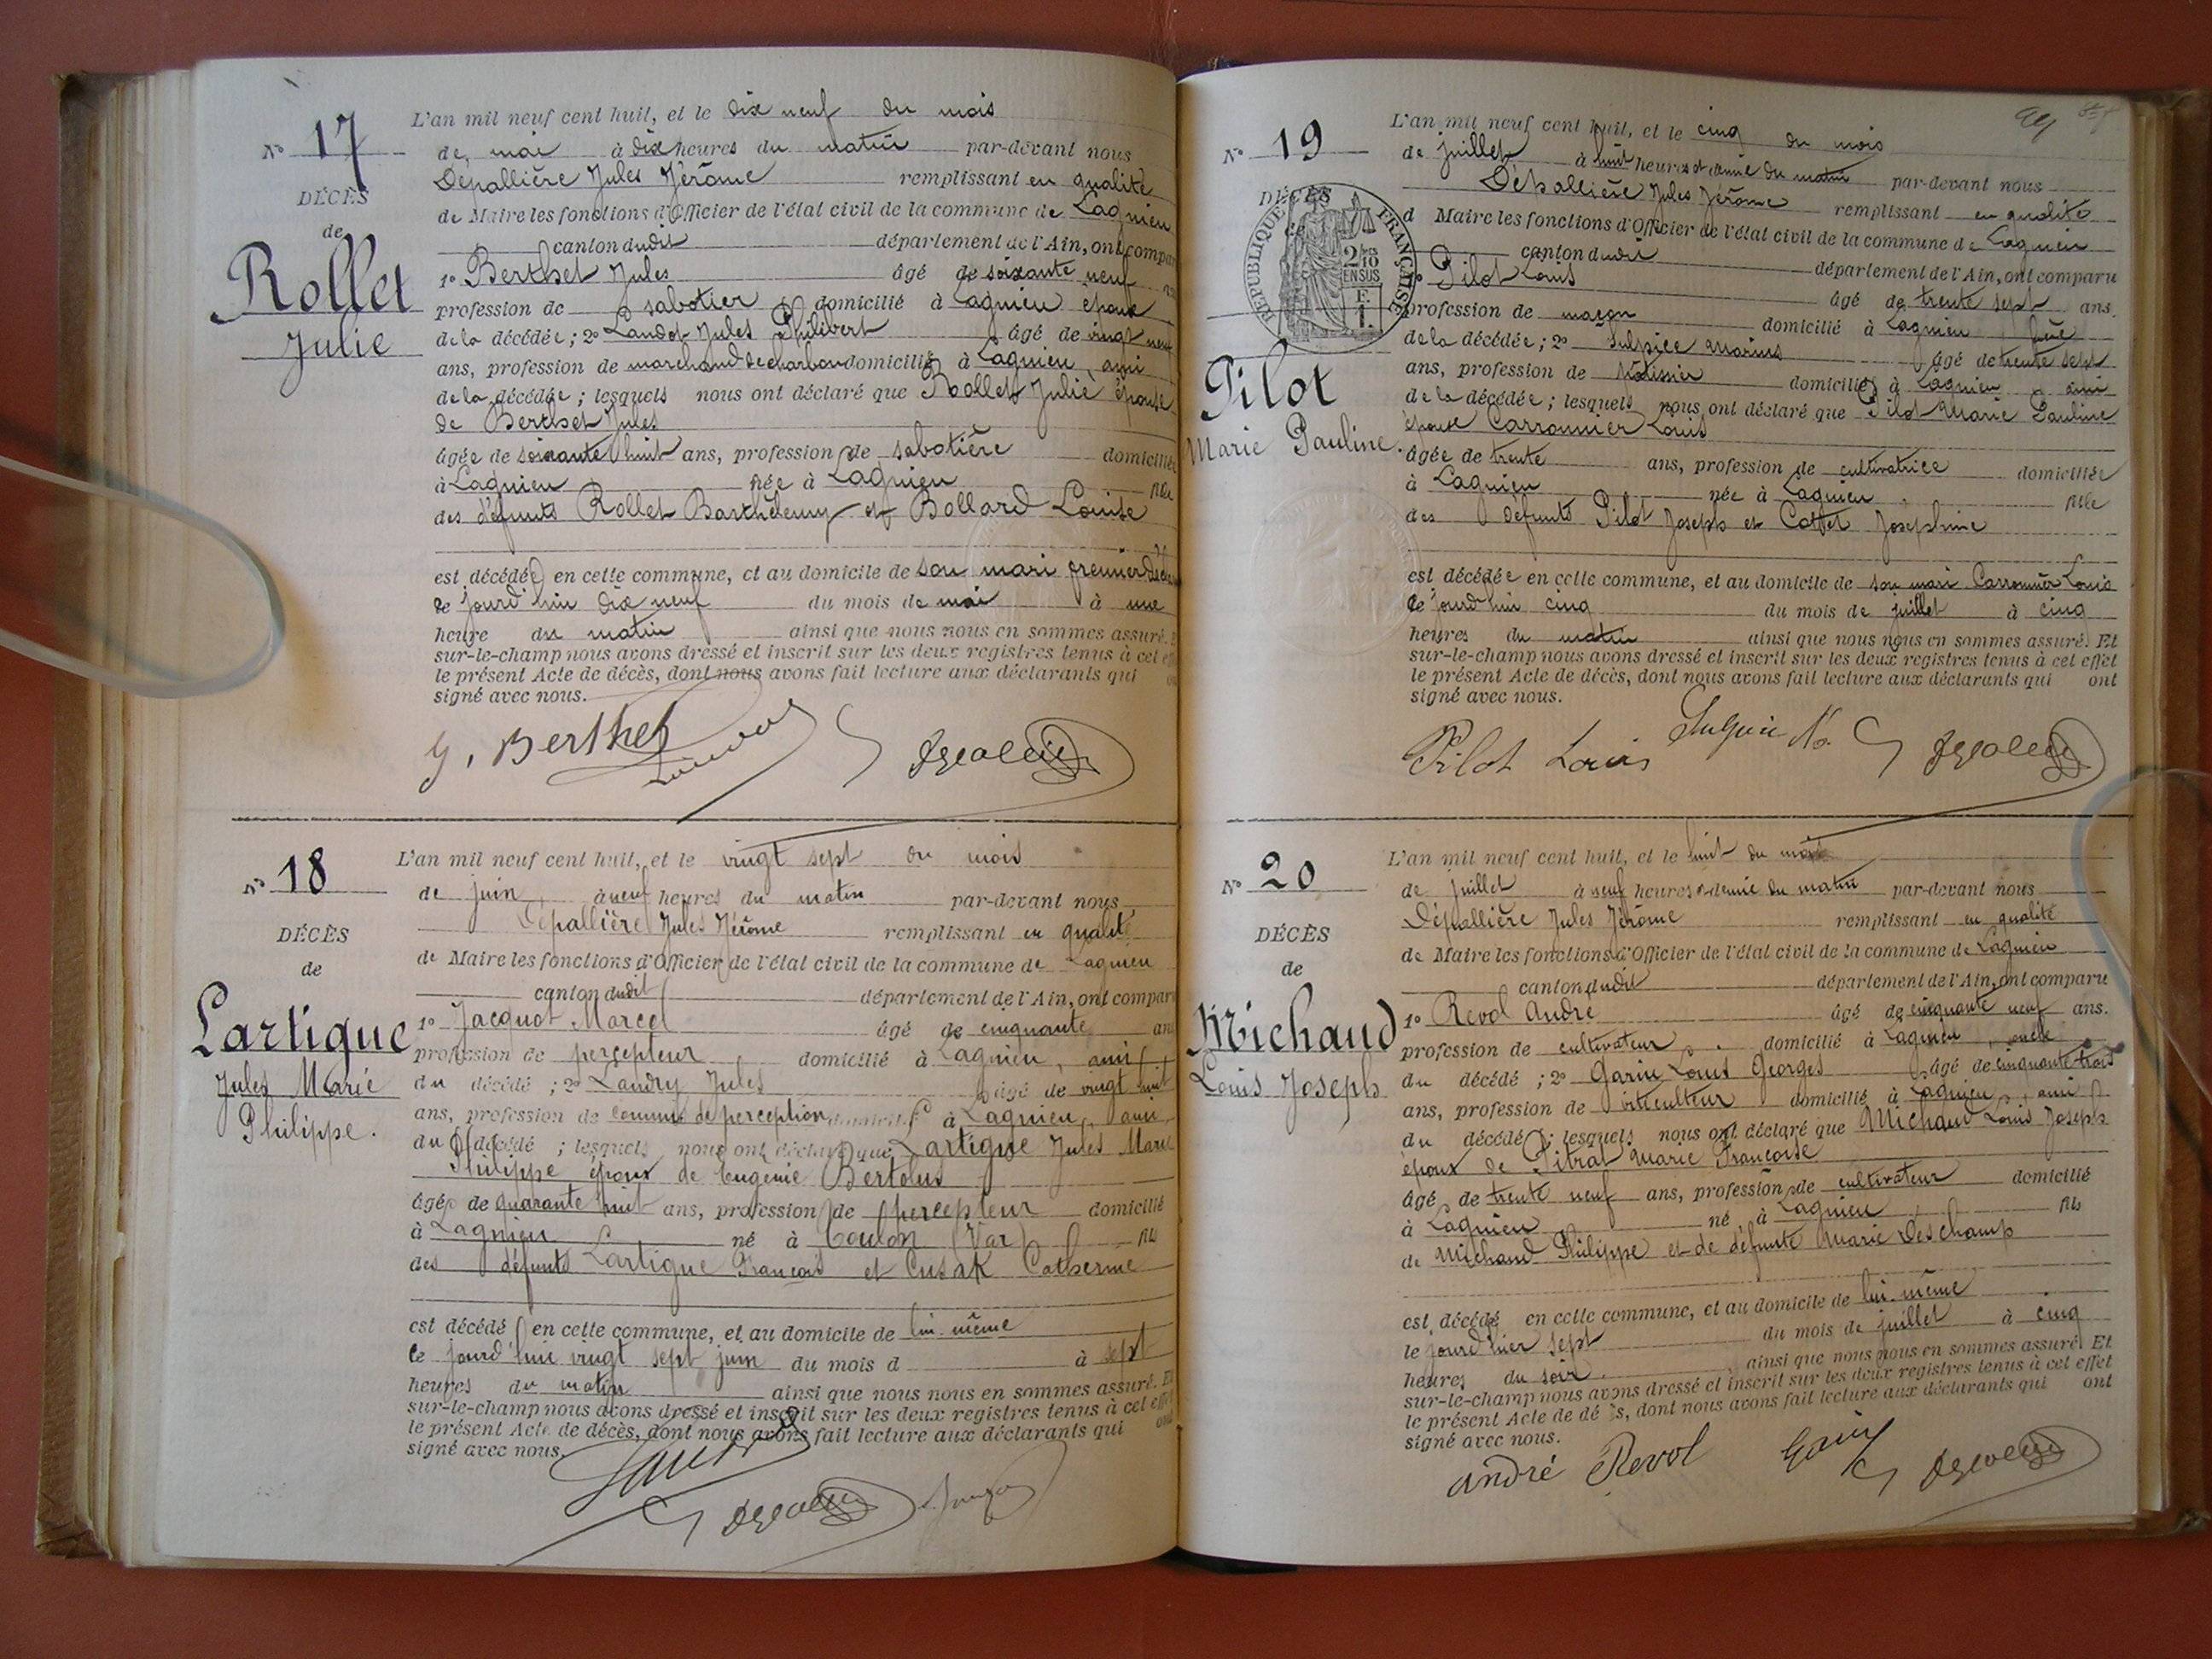 N° 17
DÉCÈS
de
Rollet
Julie
L'an mil neuf cent huit, et le dix neuf du mois
de mai à dix heures du matin par-devant nous
Dépallière Jules Jérôme remplissant en qualité
de Maire les fonctions d'Officier de l'état civil de la commune de Lagnieu
canton dudit département de l'Ain, ont compar
1° Berthet Jules âgé de soixante neuf
profession de sabotier domicilié à Lagnieu époux
de la décédée ; 2° Landot Jules Philibert âgé de vingt neuf
ans, profession de marchand de charbon domicilié à Lagnieu, ami
de la décédée ; lesquels nous ont déclaré que Rollet Julie épouse
de Berthet Jules
âgée de soixante huit ans, profession de sabotière domiciliée
à Lagnieu née à Lagnieu fille
des défunts Rollet Barthélemy et Bollard Louise
est décédée en cette commune, et au domicile de son mari
ce jourd'hui dix neuf du mois de mai à une
heure du matin ainsi que nous nous en sommes assuré. E
sur-le-champ nous avons dressé et inscrit sur les deux registres tenus à cet eff
le présent Acte de décès, dont nous avons fait lecture aux déclarants qui on
signé avec nous.
J. Berthet
N° 18
DÉCÈS
de
Lartigue
Jules Marie
Philippe.
L'an mil neuf cent huit, et le vingt sept du mois
de juin à neuf heures du matin par-devant nous
Dépallière Jules Jérôme remplissant en qualité
de Maire les fonctions d'Officier de l'état civil de la commune de Lagnieu
canton dudit département de l'Ain, ont compar
1° Jacquot Marcel âgé de cinquante ans
profession de percepteur domicilié à Lagnieu, ami
du décédé ; 2° Landry Jules âgé de vingt huit
ans, profession de commis de perception domicilié à Lagnieu, ami
du décédé ; lesquels nous ont déclaré que Lartigue Jules Marie
Philippe époux de Eugénie Bertolus
âgé de quarante huit ans, profession de percepteur domicilié
à Lagnieu né à Toulon (Var) fils
des défunts Lartigue François et Cusak Catherine
est décédé en cette commune, et au domicile de lui-même
ce jourd'hui vingt sept juin du mois d à sept
heures du matin ainsi que nous nous en sommes assuré. Et
sur-le-champ nous avons dressé et inscrit sur les deux registres tenus à cet effe
le présent Acte de décès, dont nous avons fait lecture aux déclarants qui ont
signé avec nous.
N° 19
DÉCÈS
RÉPUBLIQUE FRANÇAISE
2/10
EN SUS
Pilot
Marie Pauline.
L'an mil neuf cent huit, et le cinq du mois
de juillet à huit heures et demie du matin par-devant nous
Dépallière Jules Jérôme remplissant en qualité
d Maire les fonctions d'Officier de l'état civil de la commune de Lagnieu
canton dudit département de l'Ain, ont comparu
Pilot Louis âgé de trente sept ans.
profession de maçon domicilié à Lagnieu frère
de la décédée ; 2° Sulpice Marius âgé de trente sept
ans, profession de domicilié à Lagnieu ami
de la décédée ; lesquels nous ont déclaré que Pilot Marie Pauline
épouse Carronnier Louis
âgée de trente ans, profession de cultivatrice domiciliée
à Lagnieu née à Lagnieu fille
des défunts Pilot Joseph et Cottet Joséphine
est décédée en cette commune, et au domicile de son mari Carronnier Louis
ce jourd'hui cinq du mois de juillet à cinq
heures du matin ainsi que nous nous en sommes assuré. Et
sur-le-champ nous avons dressé et inscrit sur les deux registres tenus à cet effet
le présent Acte de décès, dont nous avons fait lecture aux déclarants qui ont
signé avec nous.
Pilot Louis
N° 20
DÉCÈS
de
Michaud
Louis Joseph
L'an mil neuf cent huit, et le huit du mois
de juillet à neuf heures et demie du matin par-devant nous
Dépallière Jules Jérôme remplissant en qualité
de Maire les fonctions d'Officier de l'état civil de la commune de Lagnieu
canton dudit département de l'Ain, ont comparu
1° Revol André âgé de cinquante neuf ans.
profession de cultivateur domicilié à Lagnieu, oncle
du décédé ; 2° Garin Louis Georges âgé de cinquante trois
ans, profession de viticulteur domicilié à Lagnieu, ami
du décédé ; lesquels nous ont déclaré que Michaud Louis Joseph
époux de Pitrat Marie Françoise
âgé de trente neuf ans, profession de cultivateur domicilié
à Lagnieu né à Lagnieu fils
de Michaud Philippe et de défunte Marie Deschamp
est décédé en cette commune, et au domicile de lui-même
le jourd'hier sept du mois de juillet à cinq
heures du soir. ainsi que nous nous en sommes assuré. Et
sur-le-champ nous avons dressé et inscrit sur les deux registres tenus à cet effet
le présent Acte de décès, dont nous avons fait lecture aux déclarants qui ont
signé avec nous.
André Revol Garin